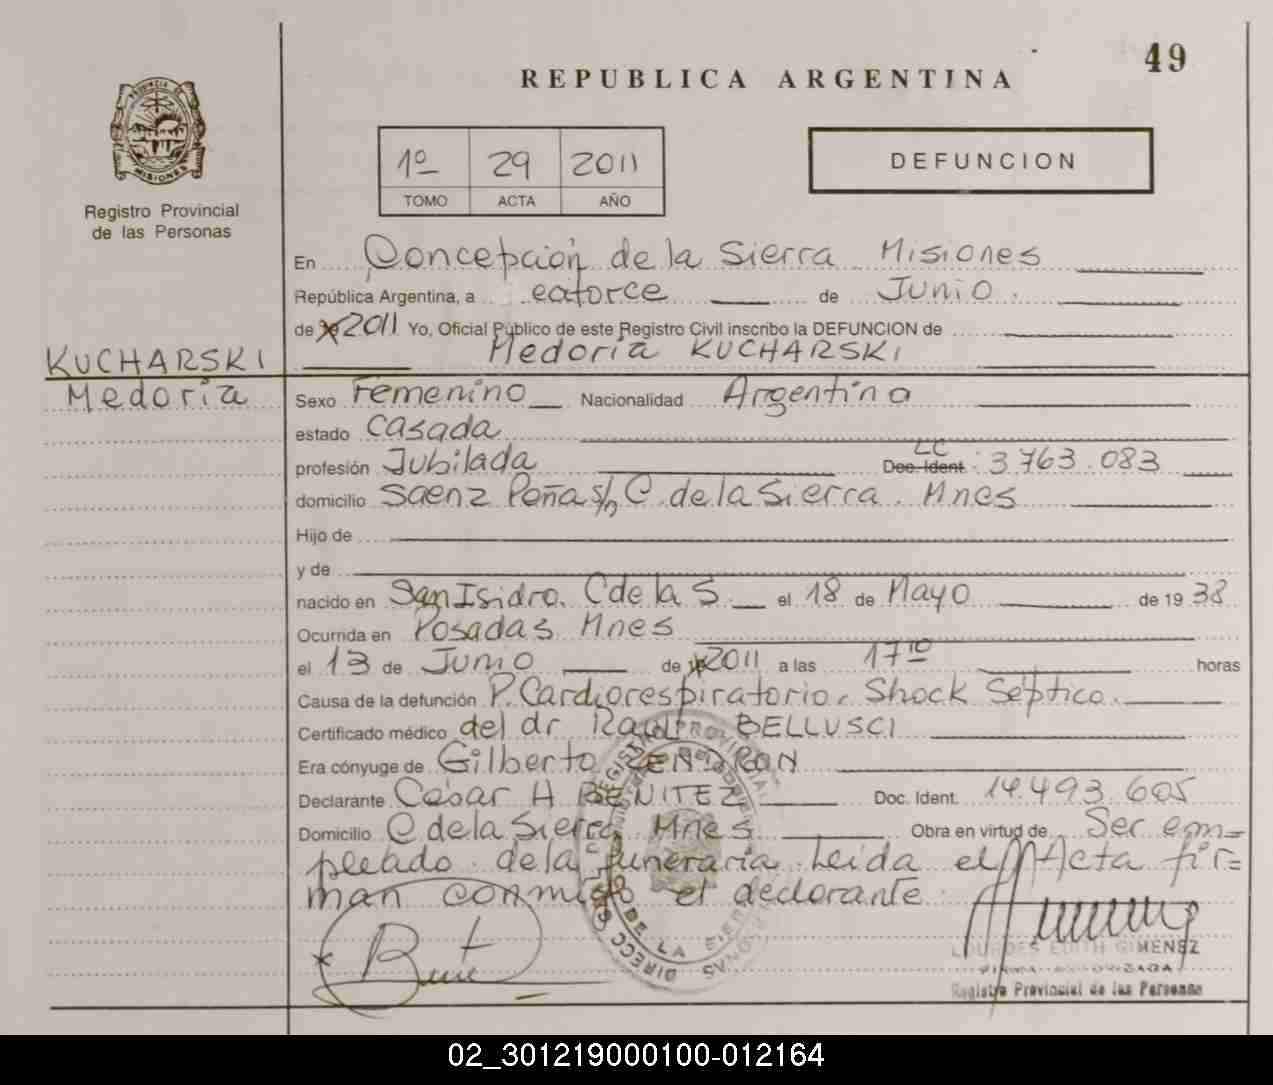 49
REPUBLICA ARGENTINA
PROVINCIA DE
MISIONES
1º 29 2011
TOMO ACTA AÑO
DEFUNCION
Registro Provincial
de las Personas
En Concepción de la Sierra Misiones
República Argentina, a catorce de Junio
de 2011 Yo, Oficial Público de este Registro Civil inscribo la DEFUNCION de
KUCHARSKI Medoria KUCHARSKI
Medoria Sexo Femenino Nacionalidad Argentina
estado Casada
profesión Jubilada Doc. Ident. LC 3763.083
domicilio Saenz Peña s/n C. de la Sierra. Mnes
Hijo de
y de
nacido en San Isidro. C de la S el 18 de Mayo de 19 38
Ocurrida en Posadas Mnes
el 13 de Junio de 2011 a las 17 10 horas
Causa de la defunción P. Cardiorespiratorio. Shock Séptico.
Certificado médico del dr Raul BELLUSCI
Era cónyuge de Gilberto
Declarante César A BENITEZ Doc. Ident. 14.493.605
Domicilio C de la Sierra Mnes Obra en virtud de Ser em=
pleado de la funeraria. Leida el Acta fir=
man conmigo el declarante.
LOURDES EDITH GIMENEZ
FIRMA AUTORIZADA
Registro Provincial de las Personas
02_301219000100-012164